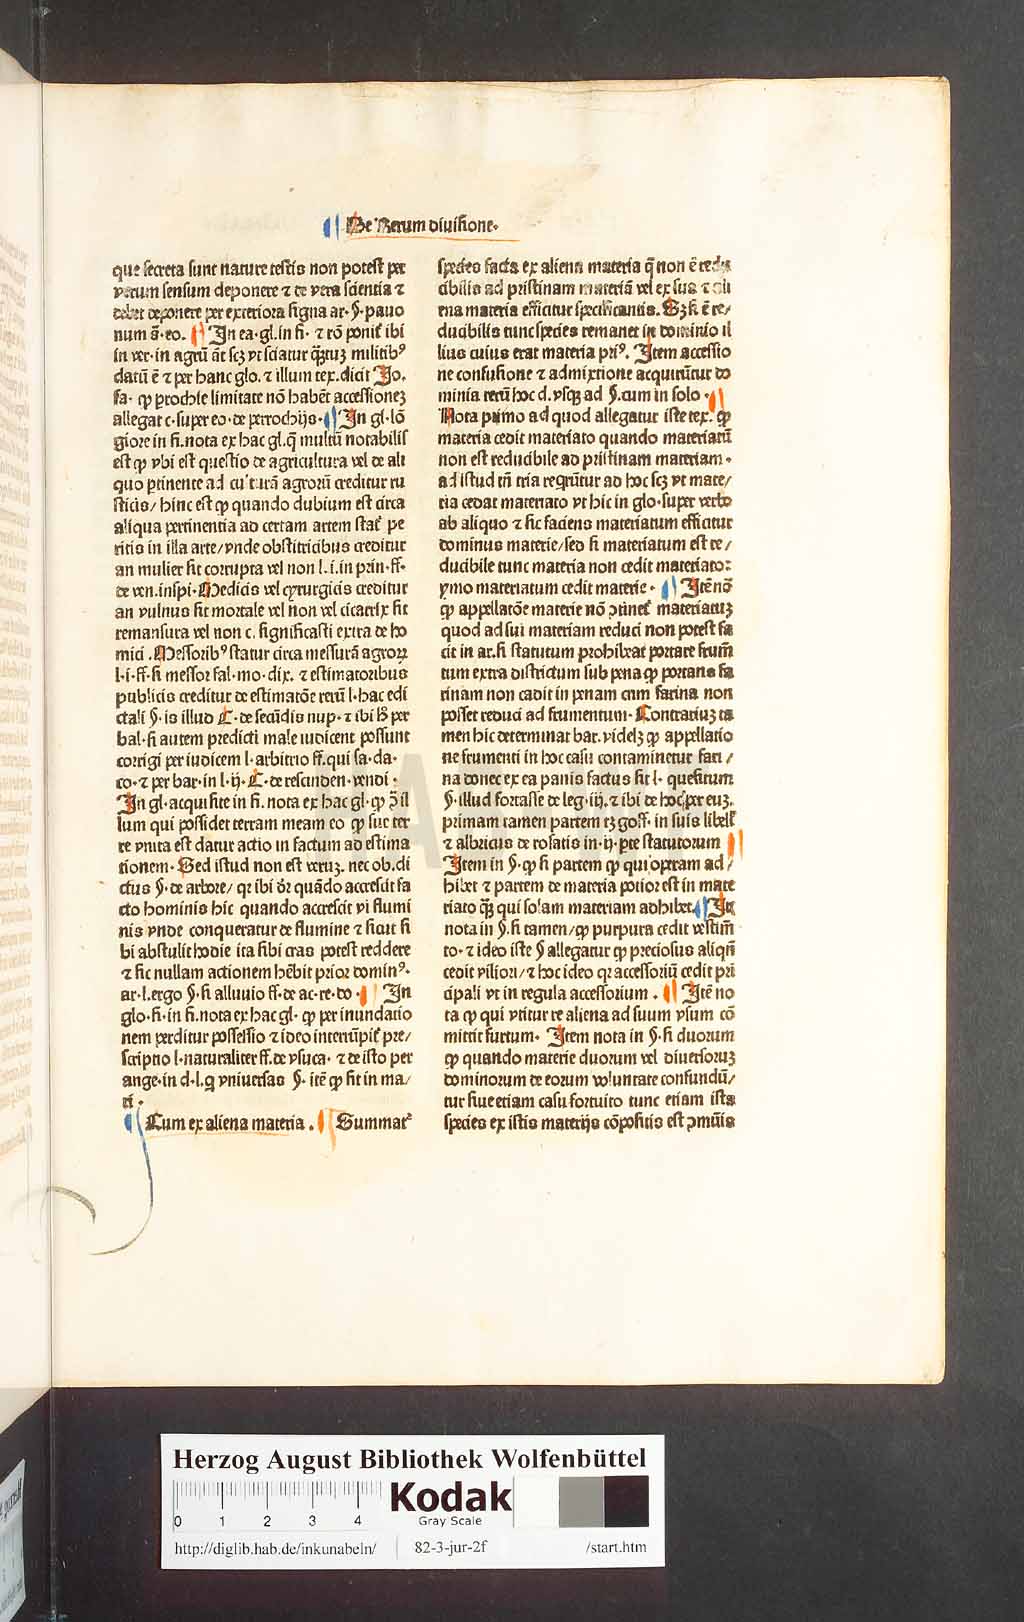 De Rerum diuisione.
que secreta sunt nature testis non potest per
verum sensum deponere ⁊ de vera scientia ⁊
debet deponere per exteriora signa ar. §. pauo
num s̄. eo. In ea. gl. in fi. ⁊ rō ponit̄ ibi
in ver. in agrū āt scꝫ vt sciatur q̄ꝫtuꝫ militibꝰ
datū ē ⁊ per hanc glo. ⁊ illum tex. dicit Jo.
fa. ꝙ prochie limitate nō habēt accessionēꝫ
allegat c. super eo. de perrochijs. In gl. lō
giore in fi. nota ex hac gl. q̄ multū notabilis
est ꝙ vbi est questio de agricultura vel de ali
quo ꝑtinente ad cu'turā agrorū creditur ru
sticis/ hinc est ꝙ quando dubium est circa
aliqua pertinentia ad certam artem stat̄ pe
ritis in illa arte/ vnde obstitricibus creditur
an mulier sit corrupta vel non l. i. in prin. ff.
de ven. inspi. Medicis vel cyrurgicis creditur
an vulnus sit mortale vel non vel cicatrix sit
remansura vel non c. significasti extra de ho
mici. Messoribꝰ statur circa messurā agroꝝ
l. i. ff. si messor fal. mo. dix. ⁊ estimatoribus
publicis creditur de estimatōe rerū l. hac edi
ctali §. is illud C. de secūdis nup. ⁊ ibi bͦ per
bal. si autem predicti male iudicent possunt
corrigi per iudicem l. arbitrio ff. qui sa. da.
co. ⁊ per bar. in l. ij. C. de rescinden. vendi.
In gl. acquisite in fi. nota ex hac gl. ꝙ ↄ̄ il
lum qui possidet terram meam eo ꝙ sue ter
re vnita est datur actio in factum ad estima
tionem. Sed istud non est veruꝫ. nec ob. di
ctus §. de arbore/ qꝛ ibi dr̄ quādo accrescit fa
cto hominis hic quando accrescit vi flumi
nis vnde conqueratur de flumine ⁊ sicut fi
bi abstulit hodie ita sibi cras potest reddere
⁊ sic nullam actionem hēbit prior dominꝰ.
ar. l. ergo §. si alluuio ff. de ac. re. do. In
glo. fi. in fi. nota ex hac gl. ꝙ per inundatio
nem perditur possessio ⁊ ideo interrūpit̄ pre/
scriptio l. naturaliter ff. de vsuca. ⁊ de isto per
ange. in d. l. q̄ vniuersas §. itē ꝙ fit in ma/
ri.
Cum ex aliena materia. Summat᷑
species facta ex aliena materia q̄ non ē redu
cibilis ad pristinam materiā vel ex sua ⁊ ali
ena materia efficitur specificantis. Sꝫ si ē re/
ducibilis tunc species remanet in dominio il
lius cuius erat materia priꝰ. Item accessio
ne confusione ⁊ admixtione acquirūtur do
minia rerū hoc d. vsqꝫ ad §. cum in solo.
Nota primo ad quod allegatur iste tex. ꝙ
materia cedit materiato quando materiatū
non est reducibile ad pristinam materiam.
ad istud tn̄ tria reqrūtur ad hoc scꝫ vt mate/
ria cedat materiato vt hic in glo. super verbo
ab aliquo ⁊ sic faciens materiatum efficitur
dominus materie/ sed si materiatum est re/
ducibile tunc materia non cedit materiato:
ymo materiatum cedit materie. Itē nō
ꝙ appellatōe materie nō ↄtinet̄ materiatuꝫ
quod ad sui materiam reduci non potest fa
cit in ar. si statutum prohibeat portare frum̄
tum extra districtum sub pena ꝙ portans fa
rinam non cadit in penam cum farina non
posset reduci ad frumentum. Contrariuꝫ ta
men hic determinat bar. videlꝫ ꝙ appellatio
ne frumenti in hoc casu contaminetur fari/
na donec ex ea panis factus sit l. quesitum
§. illud fortasse de leg. iij. ⁊ ibi de hoc per euꝫ.
primam tamen partem tꝫ goff. in suis libell̄
⁊ albricus de rosatis in. ij. pte statutorum
Item in §. ꝙ si partem ꝙ qui operam ad/
hibet ⁊ partem de materia potior est in mate
riato q̄ꝫ qui solam materiam adhibet. Itē
nota in §. si tamen/ ꝙ purpura cedit vestim̄
to. ⁊ ideo iste § allegatur ꝙ preciosus aliqn̄
cedit viliori/ ⁊ hoc ideo qꝛ accessoriū cedit pri
cipali vt in regula accessorium. Itē no
ta ꝙ qui vtitur re aliena ad suum vsum cō
mittit furtum. Item nota in §. si duorum
ꝙ quando materie duorum vel diuersoruꝫ
dominorum de eorum voluntate confundū/
tur siue etiam casu fortuito tunc etiam ista
species ex istis materijs cōpositis est ↄmūis
HAB WF
Herzog August Bibliothek Wolfenbüttel
0 1 2 3 4
Kodak
Gray Scale
http://diglib.hab.de/inkunabeln/ 82-3-jur-2f /start.htm